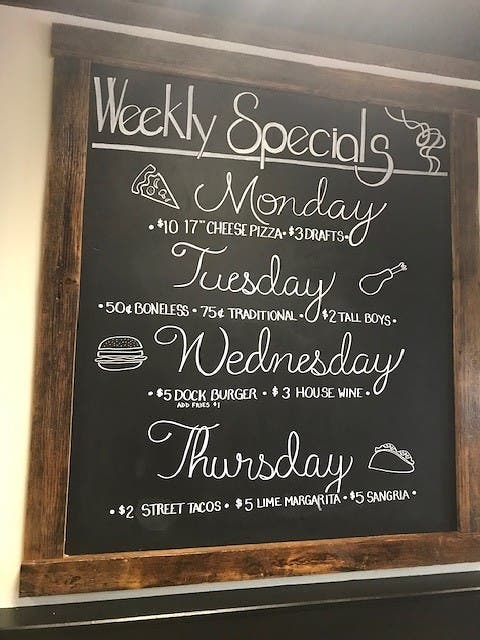 Weekly Specials
Monday
• $10 17" CHEESE PIZZA • $3 DRAFTS •
Tuesday
• 50¢ BONELESS • 75¢ TRADITIONAL • $2 TALL BOYS •
Wednesday
• $5 DOCK BURGER • $3 HOUSE WINE •
ADD FRIES $1
Thursday
• $2 STREET TACOS • $5 LIME MARGARITA • $5 SANGRIA •